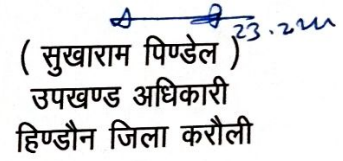 ( सुखाराम पिण्डेल )
उपखण्ड अधिकारी
हिण्डौन जिला करौली